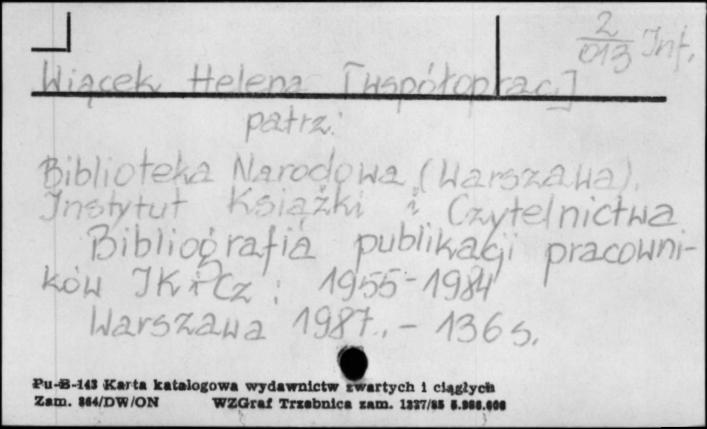 2
013 Inf.
Wiącek Helena [współoprac.]
patrz:
Biblioteka Narodowa (Warszawa).
Instytut Książki i Czytelnictwa
Bibliografia publikacji pracowni-
ków IKiCz : 1955-1984
Warszawa 1987. - 136 s.
Pu-B-143 Karta katalogowa wydawnictw zwartych i ciągłych
Zam. 864/DW/ON WZGraf Trzebnica zam. 1227/85